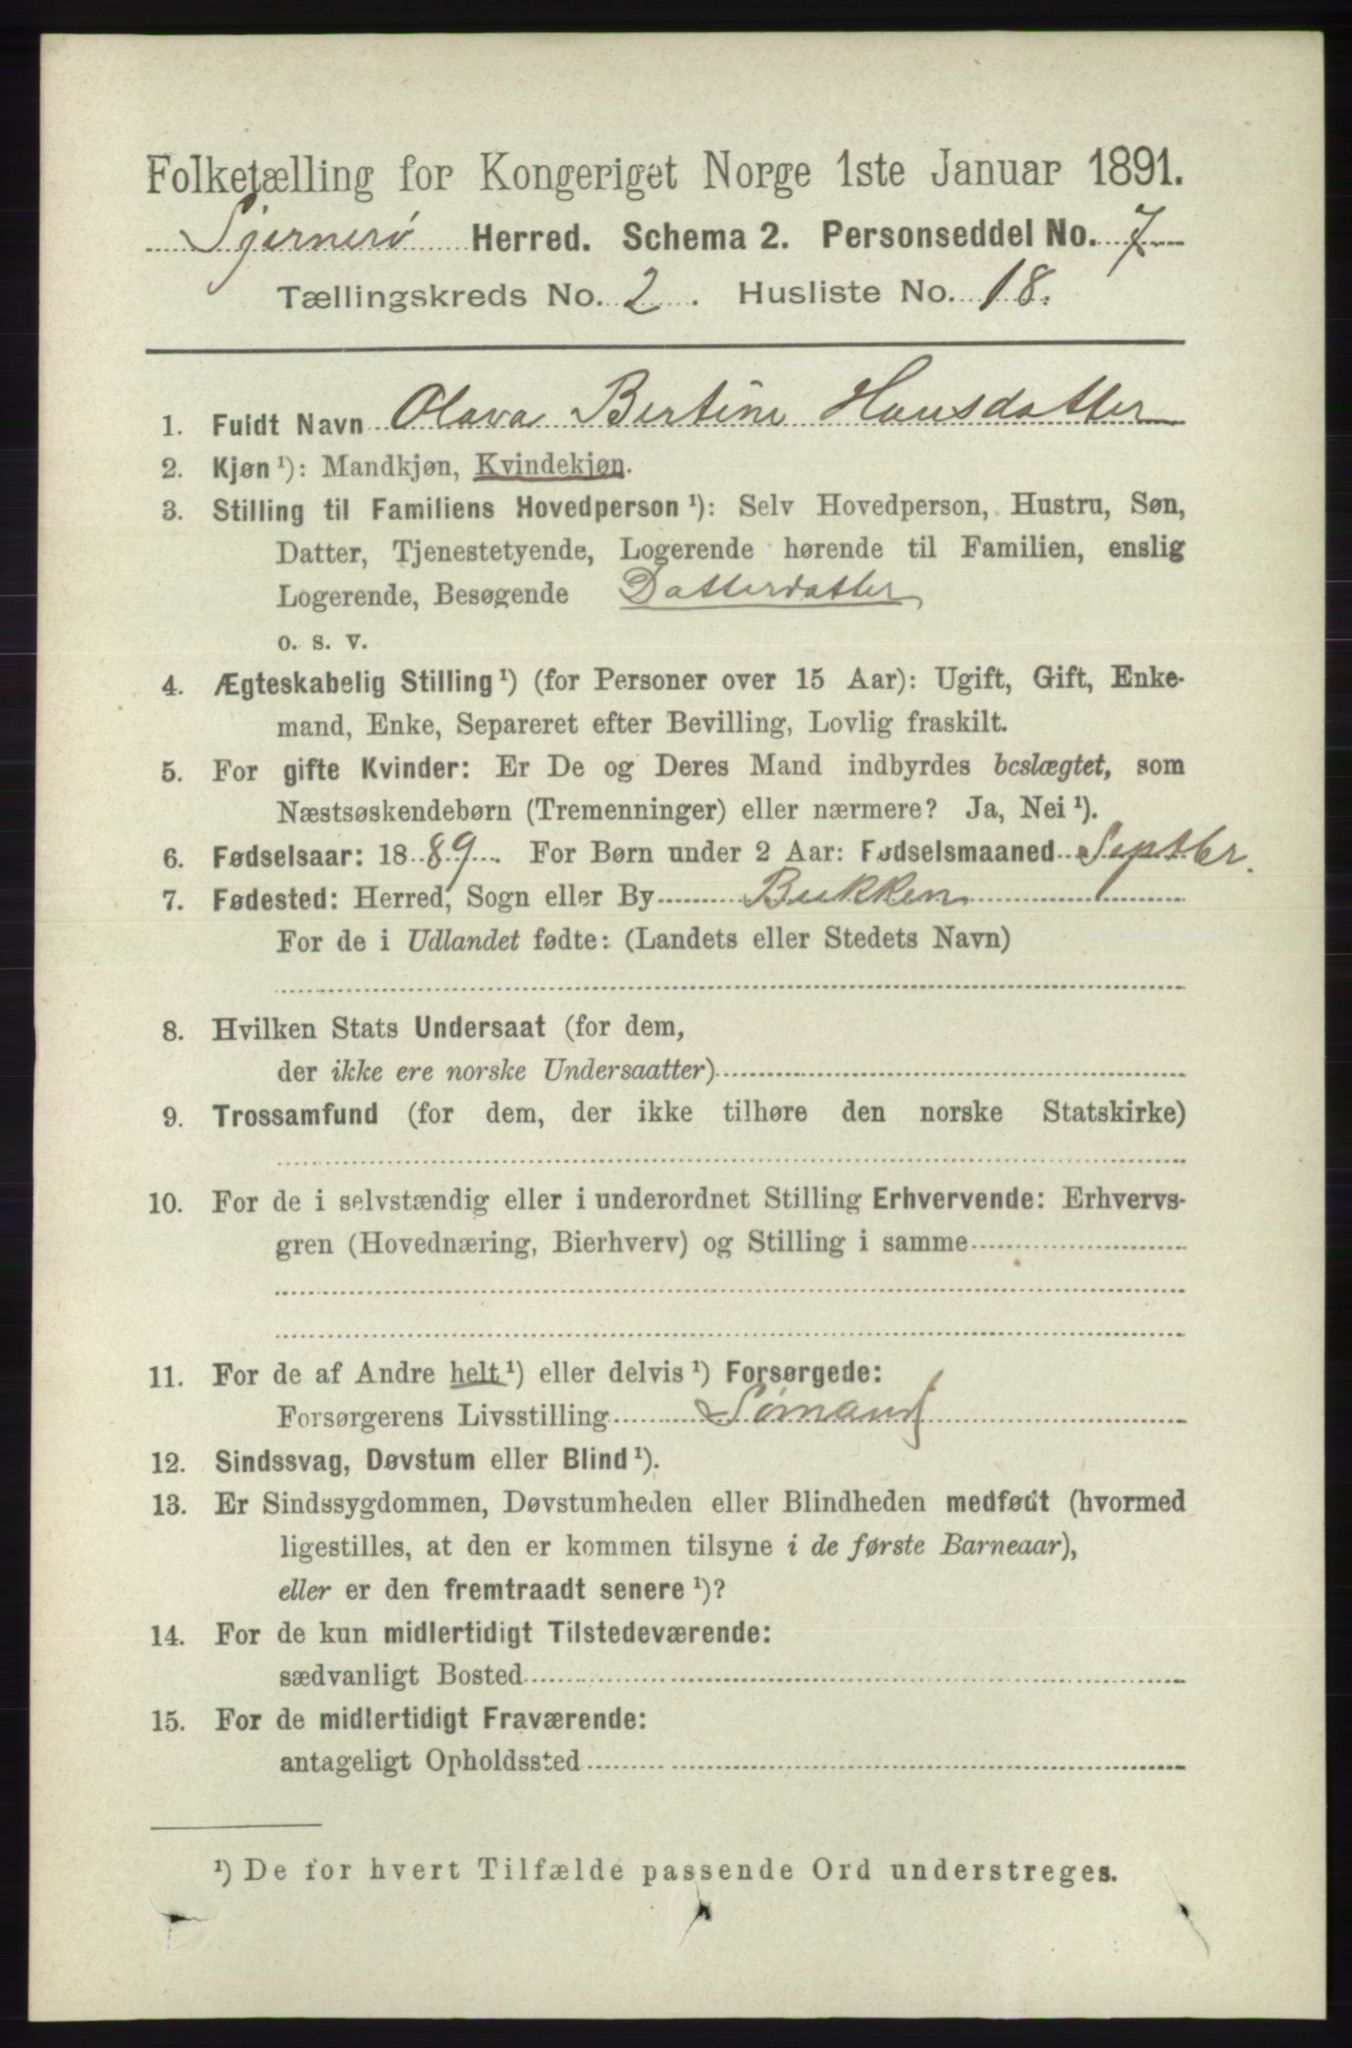 Folketælling for Kongeriget Norge 1ste Januar 1891.
Sjernerø Herred. Schema 2. Personseddel No. 7
Tællingskreds No. 2. Husliste No. 18.
1. Fuldt Navn Olava Bertine Hansdatter
2. Kjøn ¹): Mandkjøn, Kvindekjøn.
3. Stilling til Familiens Hovedperson ¹): Selv Hovedperson, Hustru, Søn,
Datter, Tjenestetyende, Logerende hørende til Familien, enslig
Logerende, Besøgende Datterdatter
o. s. v.
4. Ægteskabelig Stilling ¹) (for Personer over 15 Aar): Ugift, Gift, Enke-
mand, Enke, Separeret efter Bevilling, Lovlig fraskilt.
5. For gifte Kvinder: Er De og Deres Mand indbyrdes beslægtet, som
Næstsøskendebørn (Tremenninger) eller nærmere? Ja, Nei ¹).
6. Fødselsaar: 1889. For Børn under 2 Aar: Fødselsmaaned Septbr.
7. Fødested: Herred, Sogn eller By Bukken
For de i Udlandet fødte: (Landets eller Stedets Navn)
8. Hvilken Stats Undersaat (for dem,
der ikke ere norske Undersaatter)
9. Trossamfund (for dem, der ikke tilhøre den norske Statskirke)
10. For de i selvstændig eller i underordnet Stilling Erhvervende: Erhvervs-
gren (Hovednæring, Bierhverv) og Stilling i samme
11. For de af Andre helt ¹) eller delvis ¹) Forsørgede:
Forsørgerens Livsstilling Sømand
12. Sindssvag, Døvstum eller Blind ¹).
13. Er Sindssygdommen, Døvstumheden eller Blindheden medfødt (hvormed
ligestilles, at den er kommen tilsyne i de første Barneaar),
eller er den fremtraadt senere ¹)?
14. For de kun midlertidigt Tilstedeværende:
sædvanligt Bosted
15. For de midlertidigt Fraværende:
antageligt Opholdssted
¹) De for hvert Tilfælde passende Ord understreges.